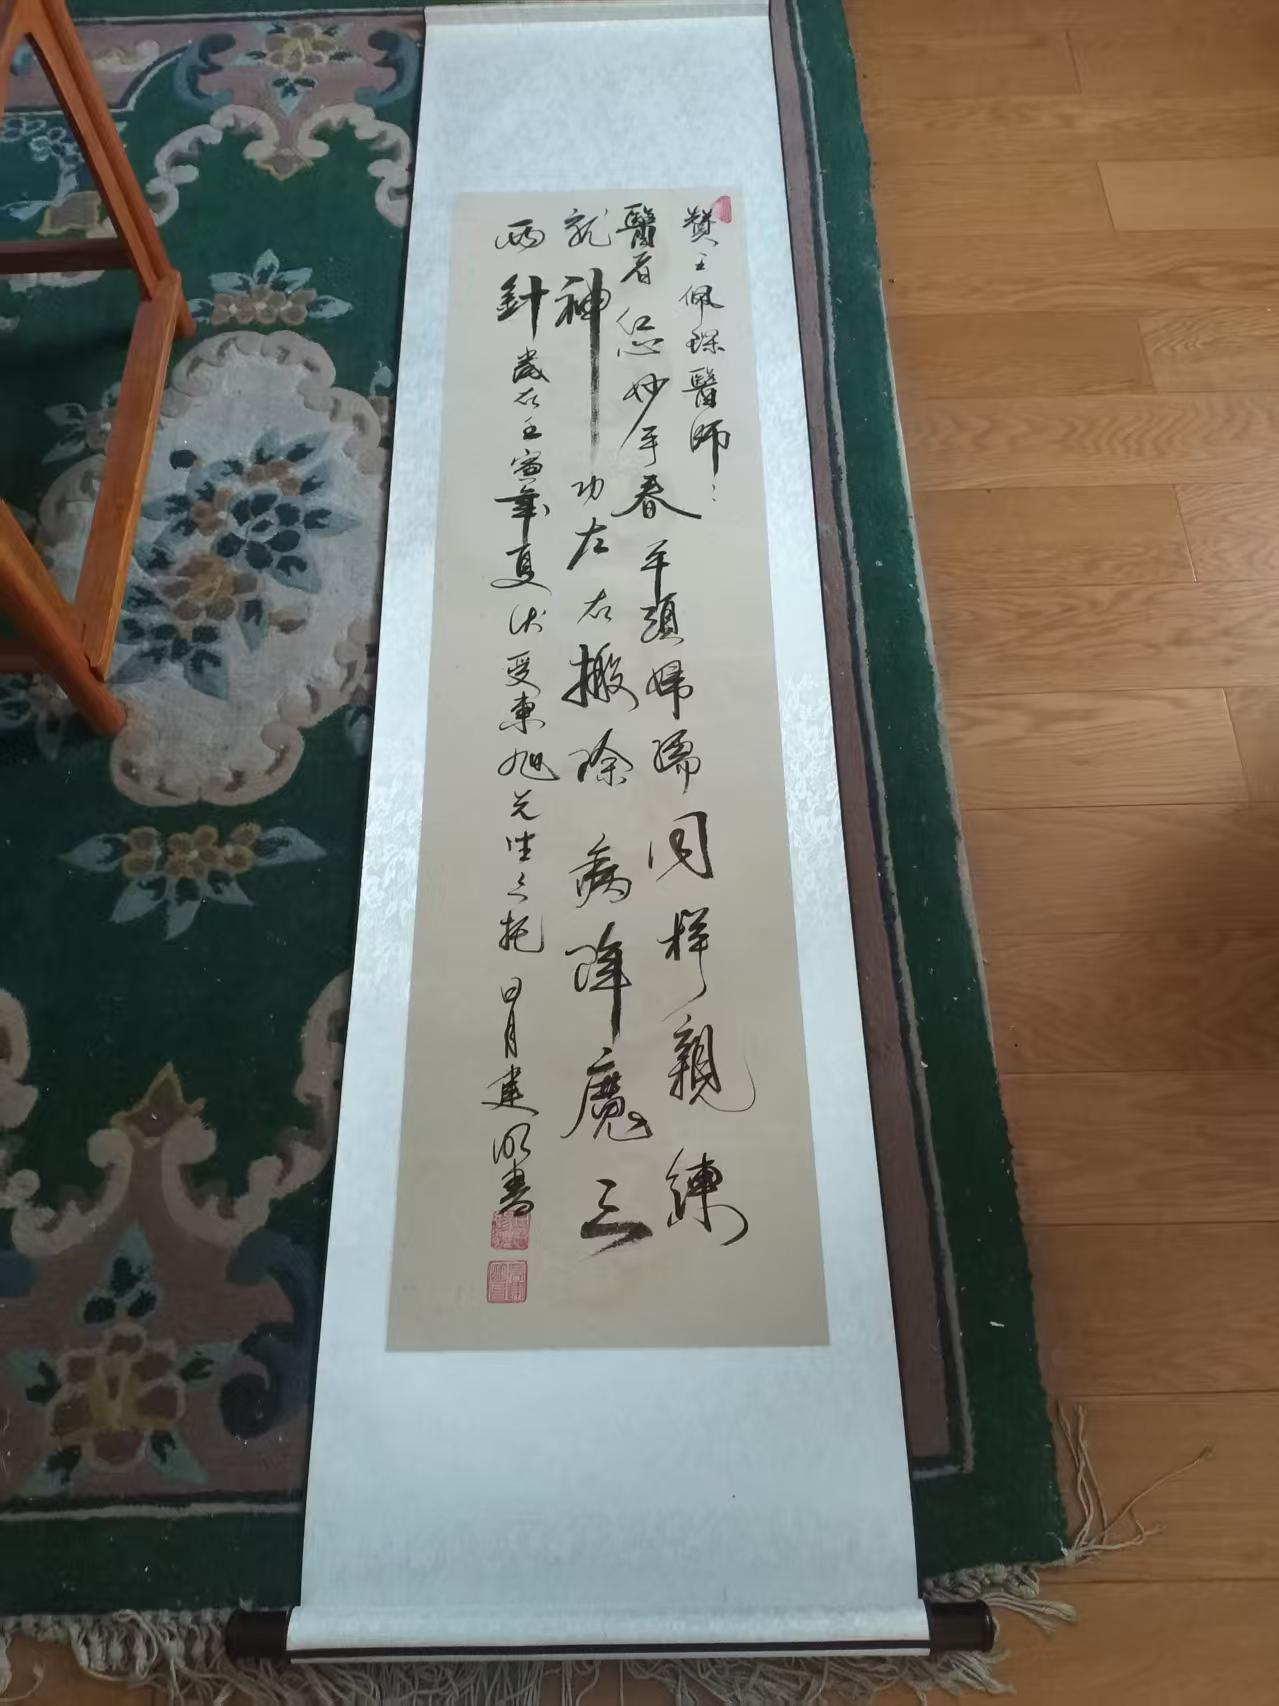 贊王佩琛醫師：
醫者仁心妙手春平頭婦孺同样親練
就神功左右搬除病降魔三
两針歲在壬寅年夏伏受東旭先生之托 日月建明書